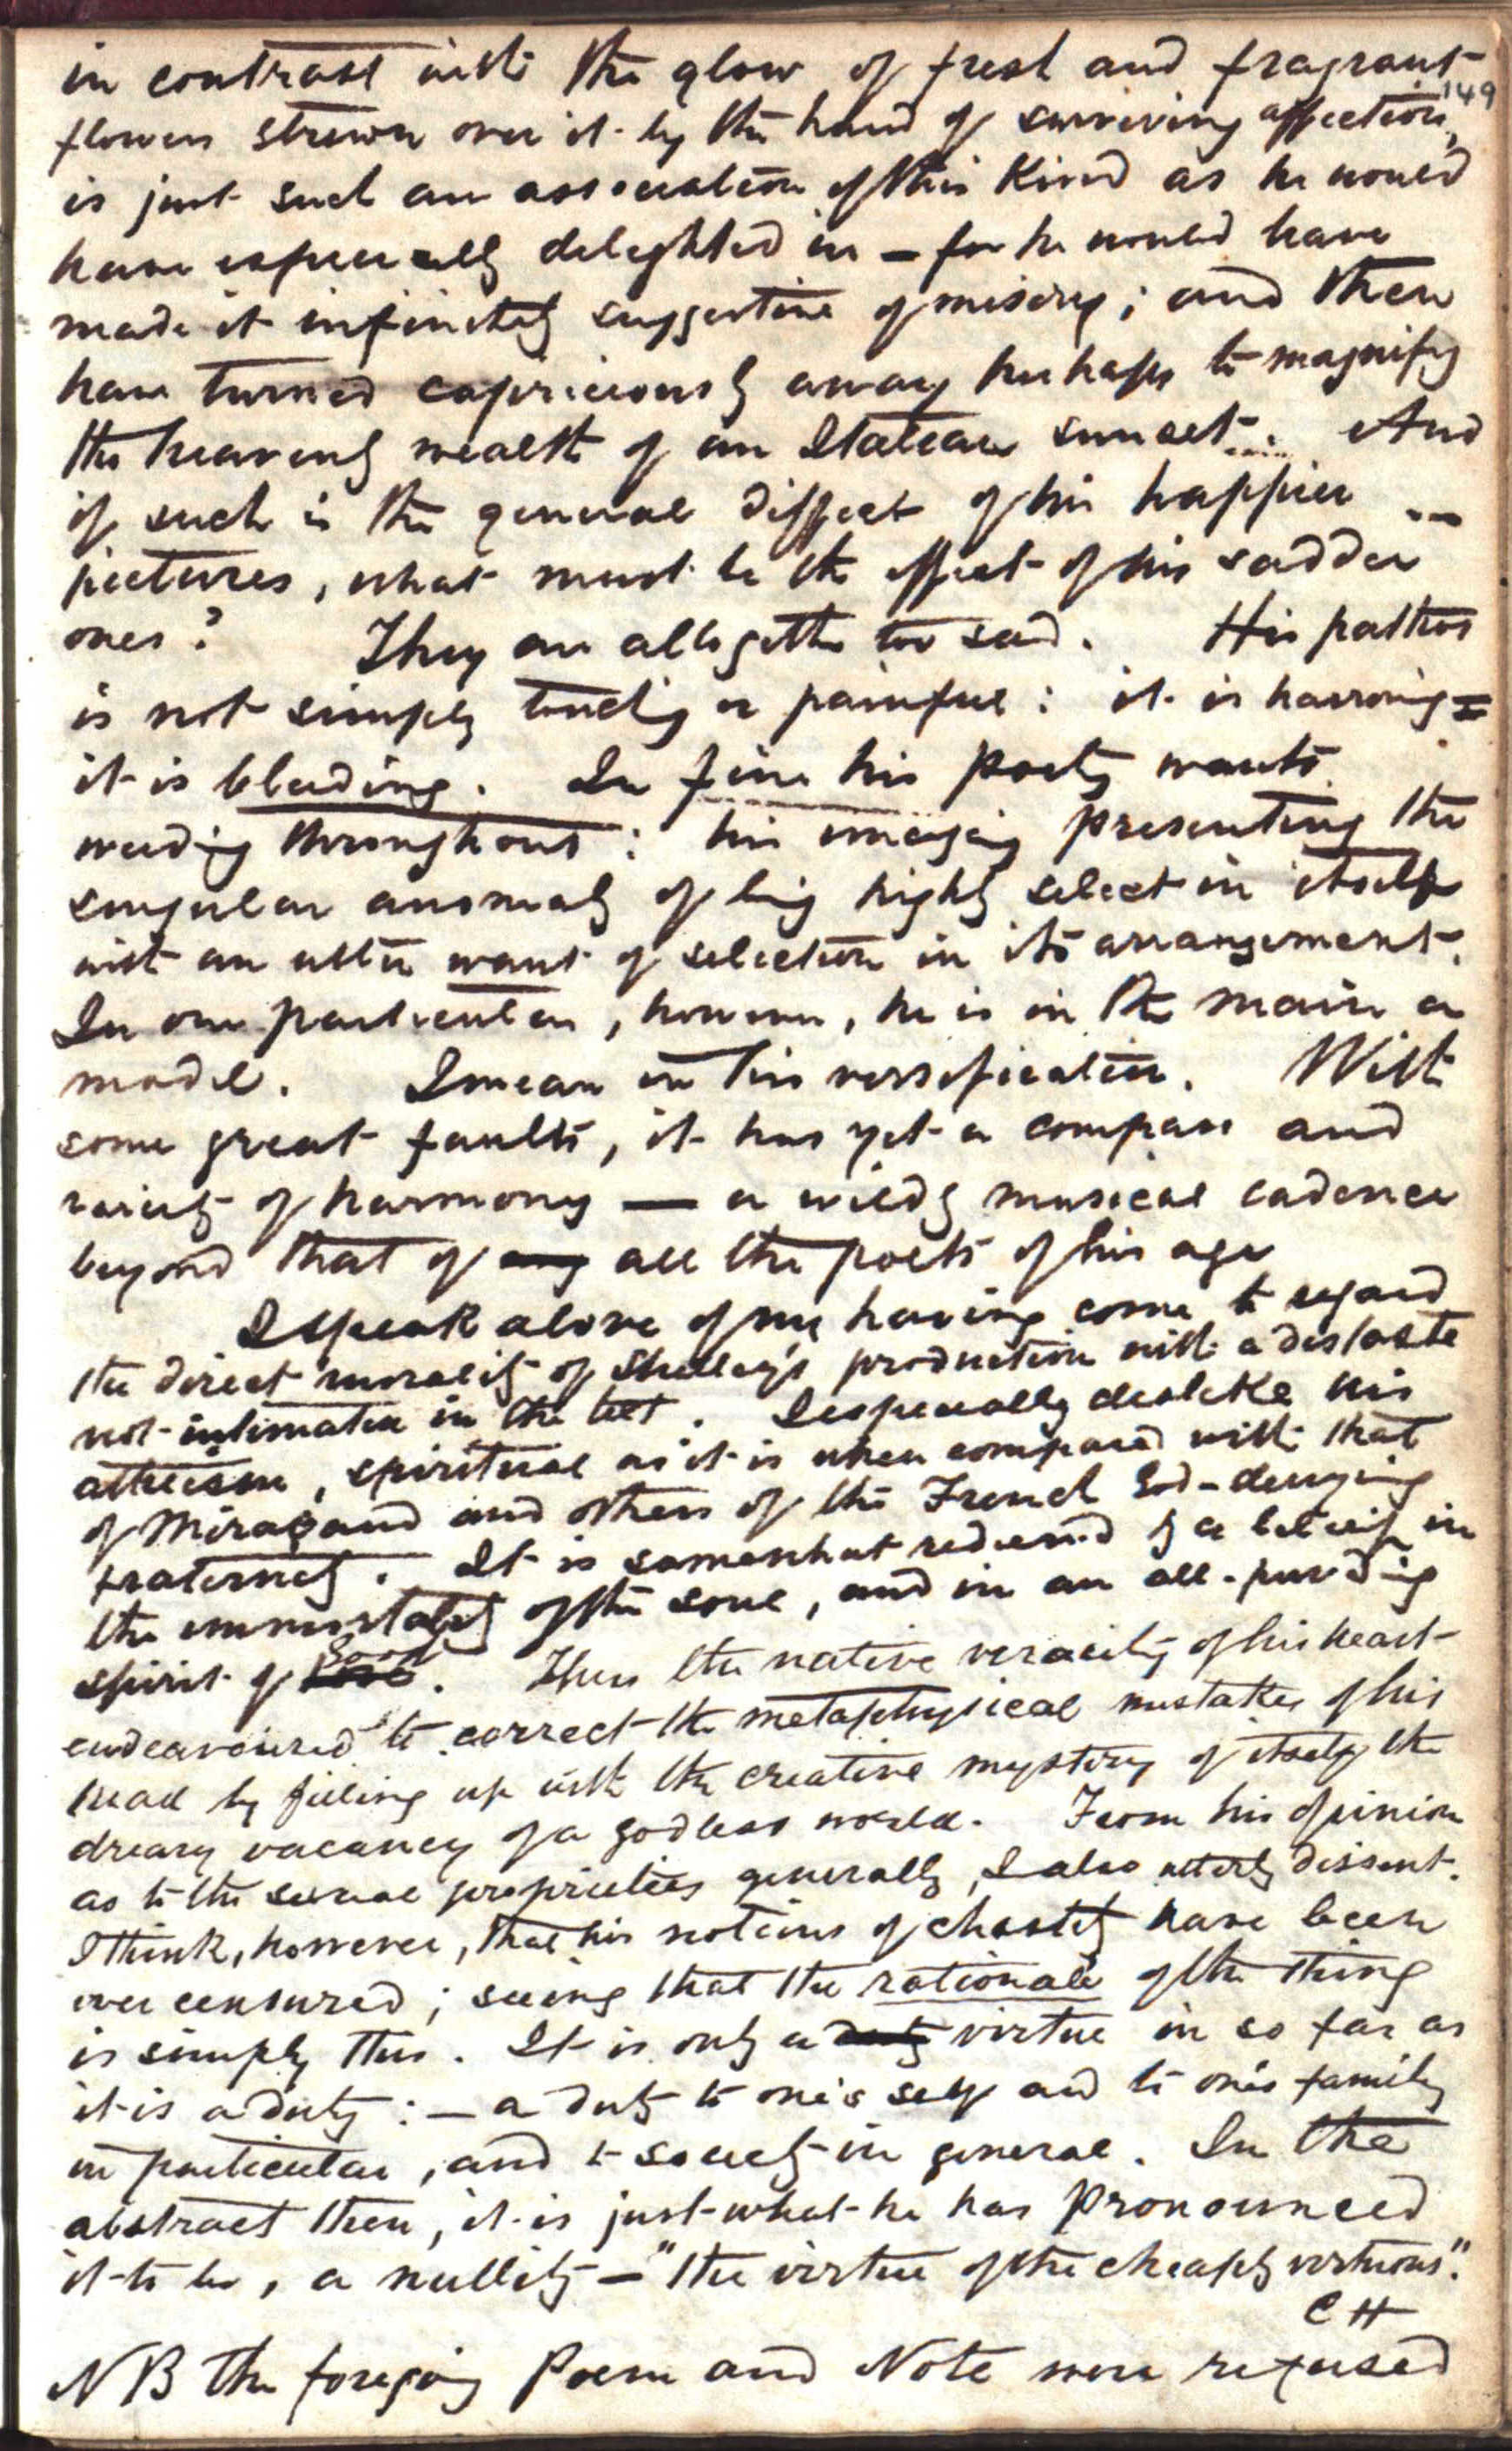 in contrast with the glow of fresh and fragrant
149
flowers strewn over it by the hand of surviving affection,
is just such an association of this Kind as he would
have especially delighted in — for he would have
made it infinitely suggestive of misery; and then
have turned capriciously away perhaps to magnify
the heavenly wealth of an Italian sunset... And
if such is the general effect of his happier
pictures, what must be the effect of his sadder
ones? They are altogether too sad. His pathos
is not simply touching or painful: it is harrowing =
it is bleeding. In fine his poetry wants
weeding throughout: his imagery presenting the
singular anomaly of being highly select in itself
with an utter want of selection in its arrangement.
In one particular, however, he is in the main a
model. I mean in his versification. With
some great faults, it has yet a compass and
variety of harmony — a wildly musical cadence
beyond that of any all the poets of his age
I speak above of my having come to regard
the direct morality of Shelley's production with a distaste
not intimated in the text. I especially dislike his
atheism, spiritual as it is when compared with that
of Mirabaud and others of the French God-denying
fraternity. It is somewhat redeemed by a belief in
the immortality of the soul, and in an all-pervading
spirit of Good. Thus the native veracity of his heart
endeavoured to correct the metaphysical mistakes of his
head by filling up with the creative mystery of itself the
dreary vacancy of a godless world. From his opinion
as to the sexual proprieties generally, I also utterly dissent.
I think, however, that his notions of chastity have been
over censured; seeing that the rationale of the thing
is simply this. It is only a duty virtue in so far as
it is a duty: — a duty to one's self and to one's family
in particular, and to society in general. In the
abstract then, it is just what he has pronounced
it to be, a nullity — "the virtue of the cheaply virtuous".
C H
NB The foregoing Poem and Note were refused